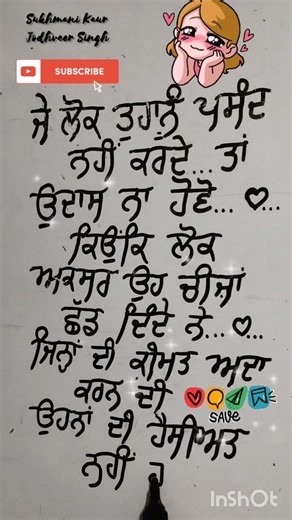 Sukhmani Kaur
Jodhveer Singh
SUBSCRIBE
ਜੇ ਲੋਕ ਤੁਹਾਨੂੰ ਪਸੰਦ
ਨਹੀਂ ਕਰਦੇ... ਤਾਂ
ਉਦਾਸ ਨਾ ਹੋਣੋ...
ਕਿਉਂਕਿ ਲੋਕ
ਅਕਸਰ ਉਹ ਚੀਜ਼ਾਂ
ਛੱਡ ਦਿੰਦੇ ਨੇ...
ਜਿਨ੍ਹਾਂ ਦੀ ਕੀਮਤ ਅਦਾ
ਕਰਨ ਦੀ
save
ਉਹਨਾਂ ਦੀ ਹੈਸੀਅਤ
ਨਹੀਂ
InShOt